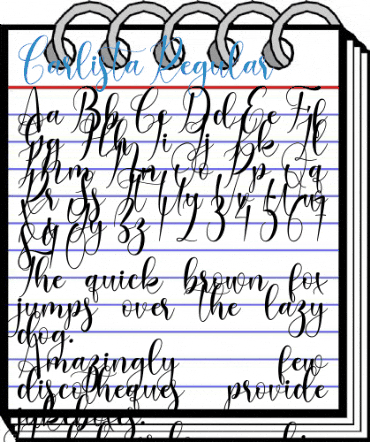 Carlista Regular
Aa Bb Cc Dd Ee Ff
Gg Hh Ii Jj Kk Ll
Mm Nn Oo Pp Qq
Rr Ss Tt Uu Vv Ww
Xx Yy Zz 1 2 3 4 5 6 7
The quick brown fox
jumps over the lazy
dog.
Amazingly few
discotheques provide
jukeboxes.